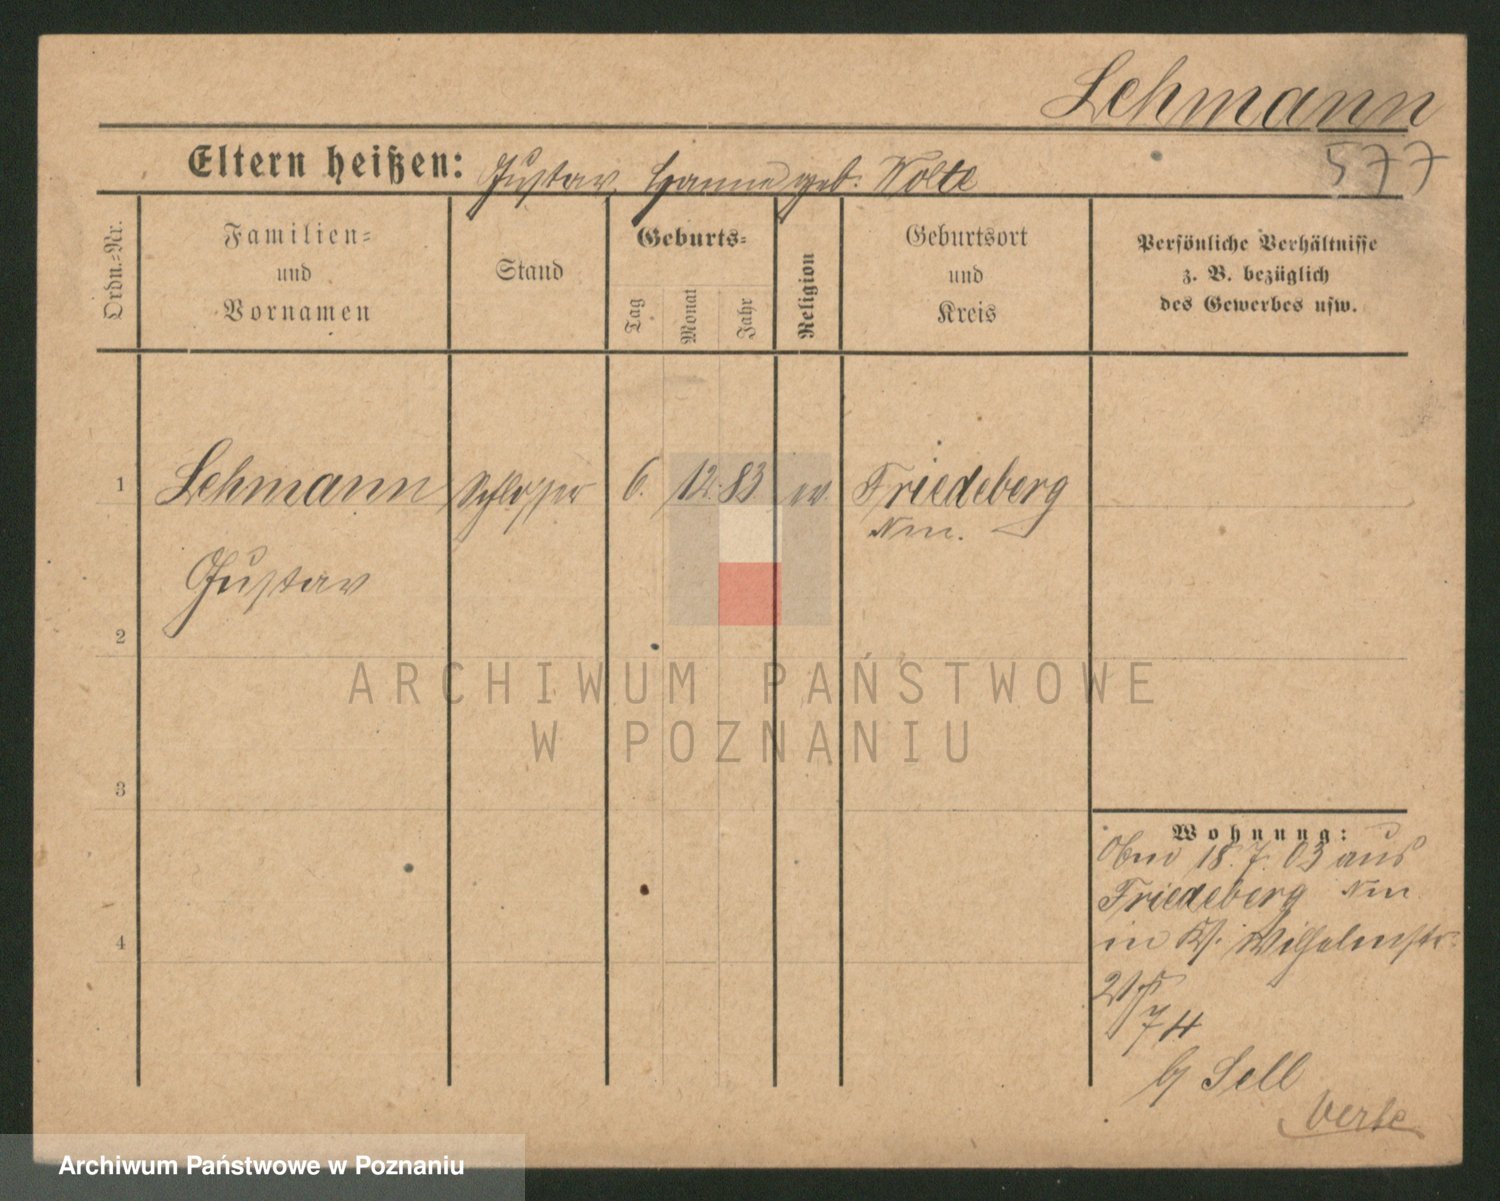 Lehmann
577
Eltern heißen: Gustav Hanne geb. Nolte
Ordn.-Nr.
Familien-
und
Vornamen
Stand
Geburts-
Tag
Monat
Jahr
Religion
Geburtsort
und
Kreis
Persönliche Verhältnisse
z. B. bezüglich
des Gewerbes usw.
1
Lehmann Schlosser 6. 12. 83 ev Friedeberg
Nm.
Gustav
2
ARCHIWUM PAŃSTWOWE
W POZNANIU
3
Wohnung:
18. 7. 03 aus
Friedeberg Nm
in Wilhelmstr.
21
74
Sell
4
Archiwum Państwowe w Poznaniu